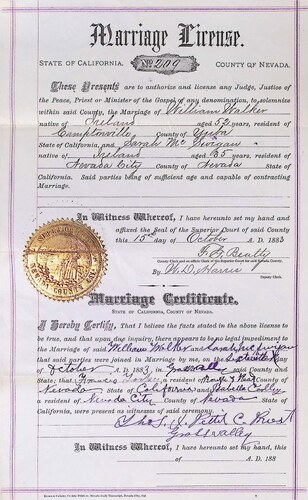 Marriage License.
STATE OF CALIFORNIA. No. 209 COUNTY OF NEVADA.
These Presents are to authorize and license any Judge, Justice of
the Peace, Priest or Minister of the Gospel of any denomination, to solemnize
within said County, the Marriage of William Walker
native of Ireland aged 52 years, resident of
Camptonville, County of Yuba
State of California, and Sarah Mc
native of Ireland aged 35 years, resident of
Nevada City County of Nevada State of
California. Said parties being of sufficient age and capable of contracting
Marriage.
In Witness Whereof, I have hereunto set my hand and
affixed the Seal of the Superior Court of said County
this 15th day of October A. D. 1883
F. G. Beatty
County Clerk
By W. D. Harris
Deputy Clerk.
Marriage Certificate.
STATE OF CALIFORNIA, COUNTY OF NEVADA.
I Hereby Certify, That I believe the facts stated in the above license to
be true, and that upon due inquiry, there appears to be no legal impediment to
the Marriage of said William Walker and Sarah
that said parties were joined in Marriage by me, on the
October A. D. 1883, in Grass Valley County and
State; that a resident of
Nevada of California and Isabella
a resident of Nevada City County of Nevada State of
California, were present as witnesses of said ceremony.
Thos. J. Pettit C. Priest
Grass Valley
In Witness Whereof, I have hereunto set my hand
this day of A. D. 188